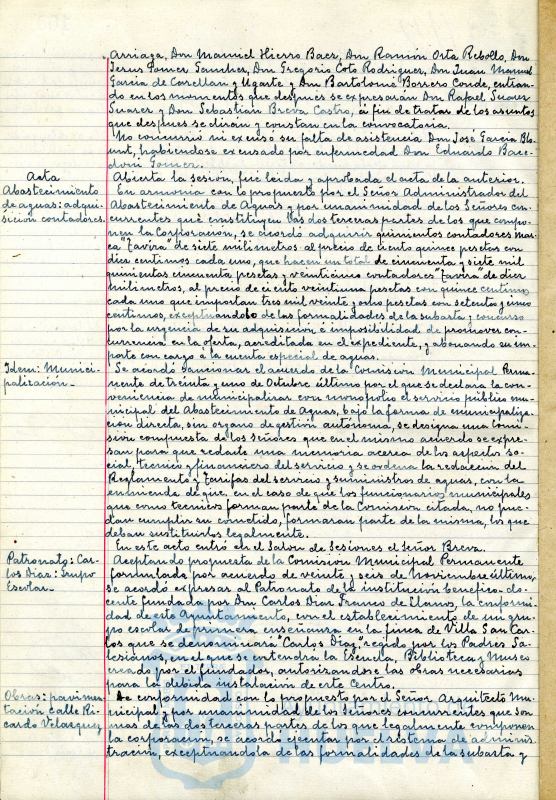 Arriaga, Don Manuel Hierro Baez, Don Ramón Orta Rebollo, Don
Jesus Gomez Sanchez, Don Gregorio Coto Rodriguez, Don Juan Manuel
Garcia de Carellan y Ugarte y Don Bartolomé Borrero Conde, entran-
do en los momentos que después se expresarán Don Rafael Suarez
Suarez y Don Sebastián Breva Castro, á fin de tratar de los asuntos
que despues se dirán y constan en la convocatoria.
No concurrió ni excusó su falta de asistencia Don José Garcia Blo-
unt, habiendose excusado por enfermedad Don Eduardo Bace-
dom Gomez.
Acta
Abierta la sesión, fué leida y aprobada el acta de la anterior.
Abastecimiento
de aguas: adqui-
sicion contadores.
En armonia con lo propuesto por el Señor Administrador del
Abastecimiento de Aguas y por unanimidad de los Señores con-
currentes que constituyen las dos terceras partes de los que compo-
nen la Corporacion, se acordó adquirir quinientos contadores mar-
ca "Tavira" de siete milimetros al precio de ciento quince pesetas con
diez centimos cada uno, que hacen un total de cincuenta y siete mil
quinientas cincuenta pesetas y veinticinco contadores "Tavira" de diez
milimetros, al precio de ciento veintiuna pesetas con quince centimos
cada uno que importan tres mil veinte y ocho pesetas con setenta y cinco
centimos, exceptuandolo de las formalidades de la subasta y concurso
por la urgencia de su adquisicion é imposibilidad de promover con-
currencia en la oferta, acreditada en el expediente, y abonando su im-
porte con cargo a la cuenta especial de aguas.
Idem: Munici-
palización.-
Se acordó sancionar el acuerdo de la Comisión Municipal Perma-
nente de treinta y uno de Octubre último por el que se declara la con-
veniencia de municipalizar con monopolio el servicio público mu-
nicipal del Abastecimiento de Aguas, bajo la forma de municipaliza-
cion directa, sin organo de gestión autónoma, se designa una Comi-
sión compuesta de los señores que en el mismo acuerdo se expre-
san para que redacte una memoria acerca de los aspectos so-
cial, tecnico y financiero del servicio y se ordena la redacción del
Reglamento y Tarifas del servicio y suministros de aguas, con la
enmienda de que, en el caso de que los funcionarios municipales
que como tecnicos forman parte de la Comision citada, no pue-
dan cumplir su cometido, formaran parte de la misma, los que
deban sustituirlos legalmente.
En este acto entró en el Salon de Sesiones el Señor Breva.
Patronato: Car-
los Diaz: Grupo
Escolar.-
Aceptando propuesta de la Comisión Municipal Permanente
formulada por acuerdo de veinte y seis de Noviembre último,
se acordó expresar al Patronato de la institución benefico-do-
cente fundada por Don Carlos Diaz Franco de Llanos, la conformi-
dad de este Ayuntamiento, con el establecimiento de un gru-
po escolar de primera enseñanza en la finca de Villa San Car-
los que se denominará "Carlos Diaz", regido por los Padres Sa-
lesianos, en el que se entendrá la Escuela, Biblioteca y Museo
creado por el fundador, autorizandose las obras necesarias
para la debida instalación de este Centro.
Obras: pavimen-
tación calle Ri-
cardo Velazquez
De conformidad con lo propuesto por el Señor Arquitecto Mu-
nicipal y por unanimidad de los Señores concurrentes que son
mas de las dos terceras partes de los que legalmente componen
la corporación, se acordó ejecutar por el sistema de adminis-
tración, exceptuandola de las formalidades de la subasta y